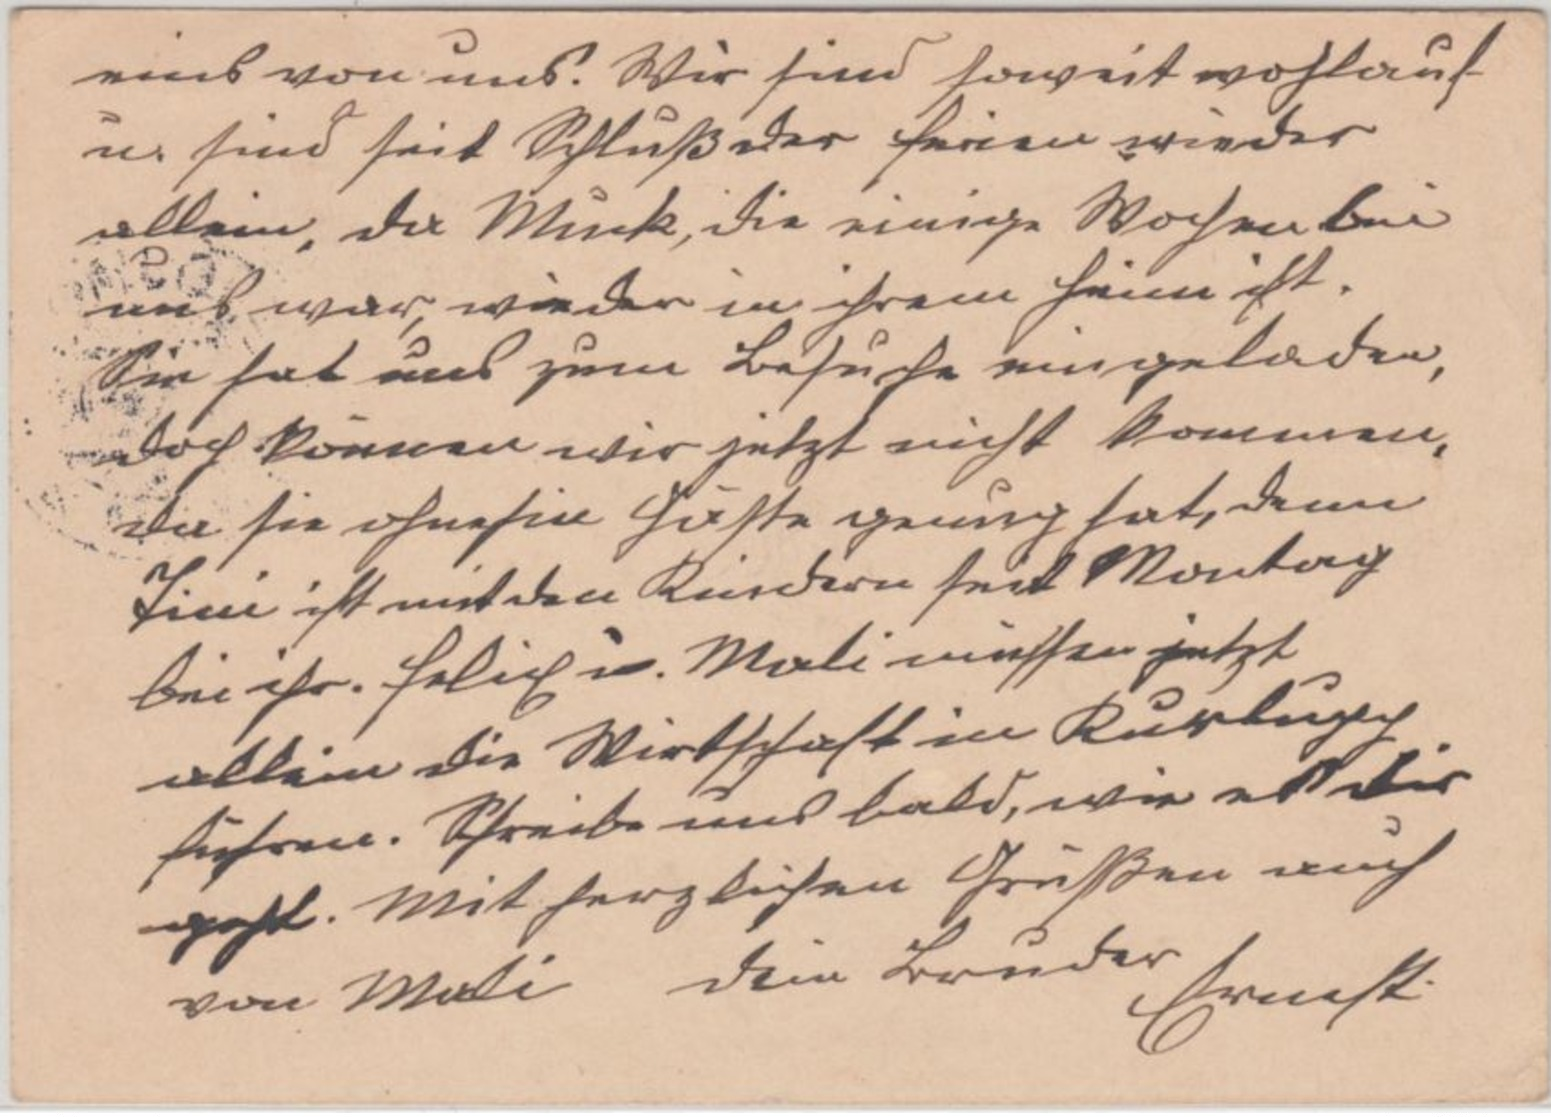 eins von uns. Wir sind soweit wohlauf
u. sind seit Schluß der Ferien wieder
allein, da Muck, die einige Wochen bei
uns war, wieder in ihrem Heim ist.
Sie hat uns zum Besuche eingeladen,
doch können wir jetzt nicht kommen,
da sie ohnehin Gäste genug hat, denn
Fini ist mit den Kindern seit Montag
bei ihr. Felix u. Mali müssen jetzt
allein die Wirtschaft in
führen. Schreibe uns bald, wie es dir
geht. Mit herzlichen Grüßen auch
von Mali dein Bruder
Ernest.